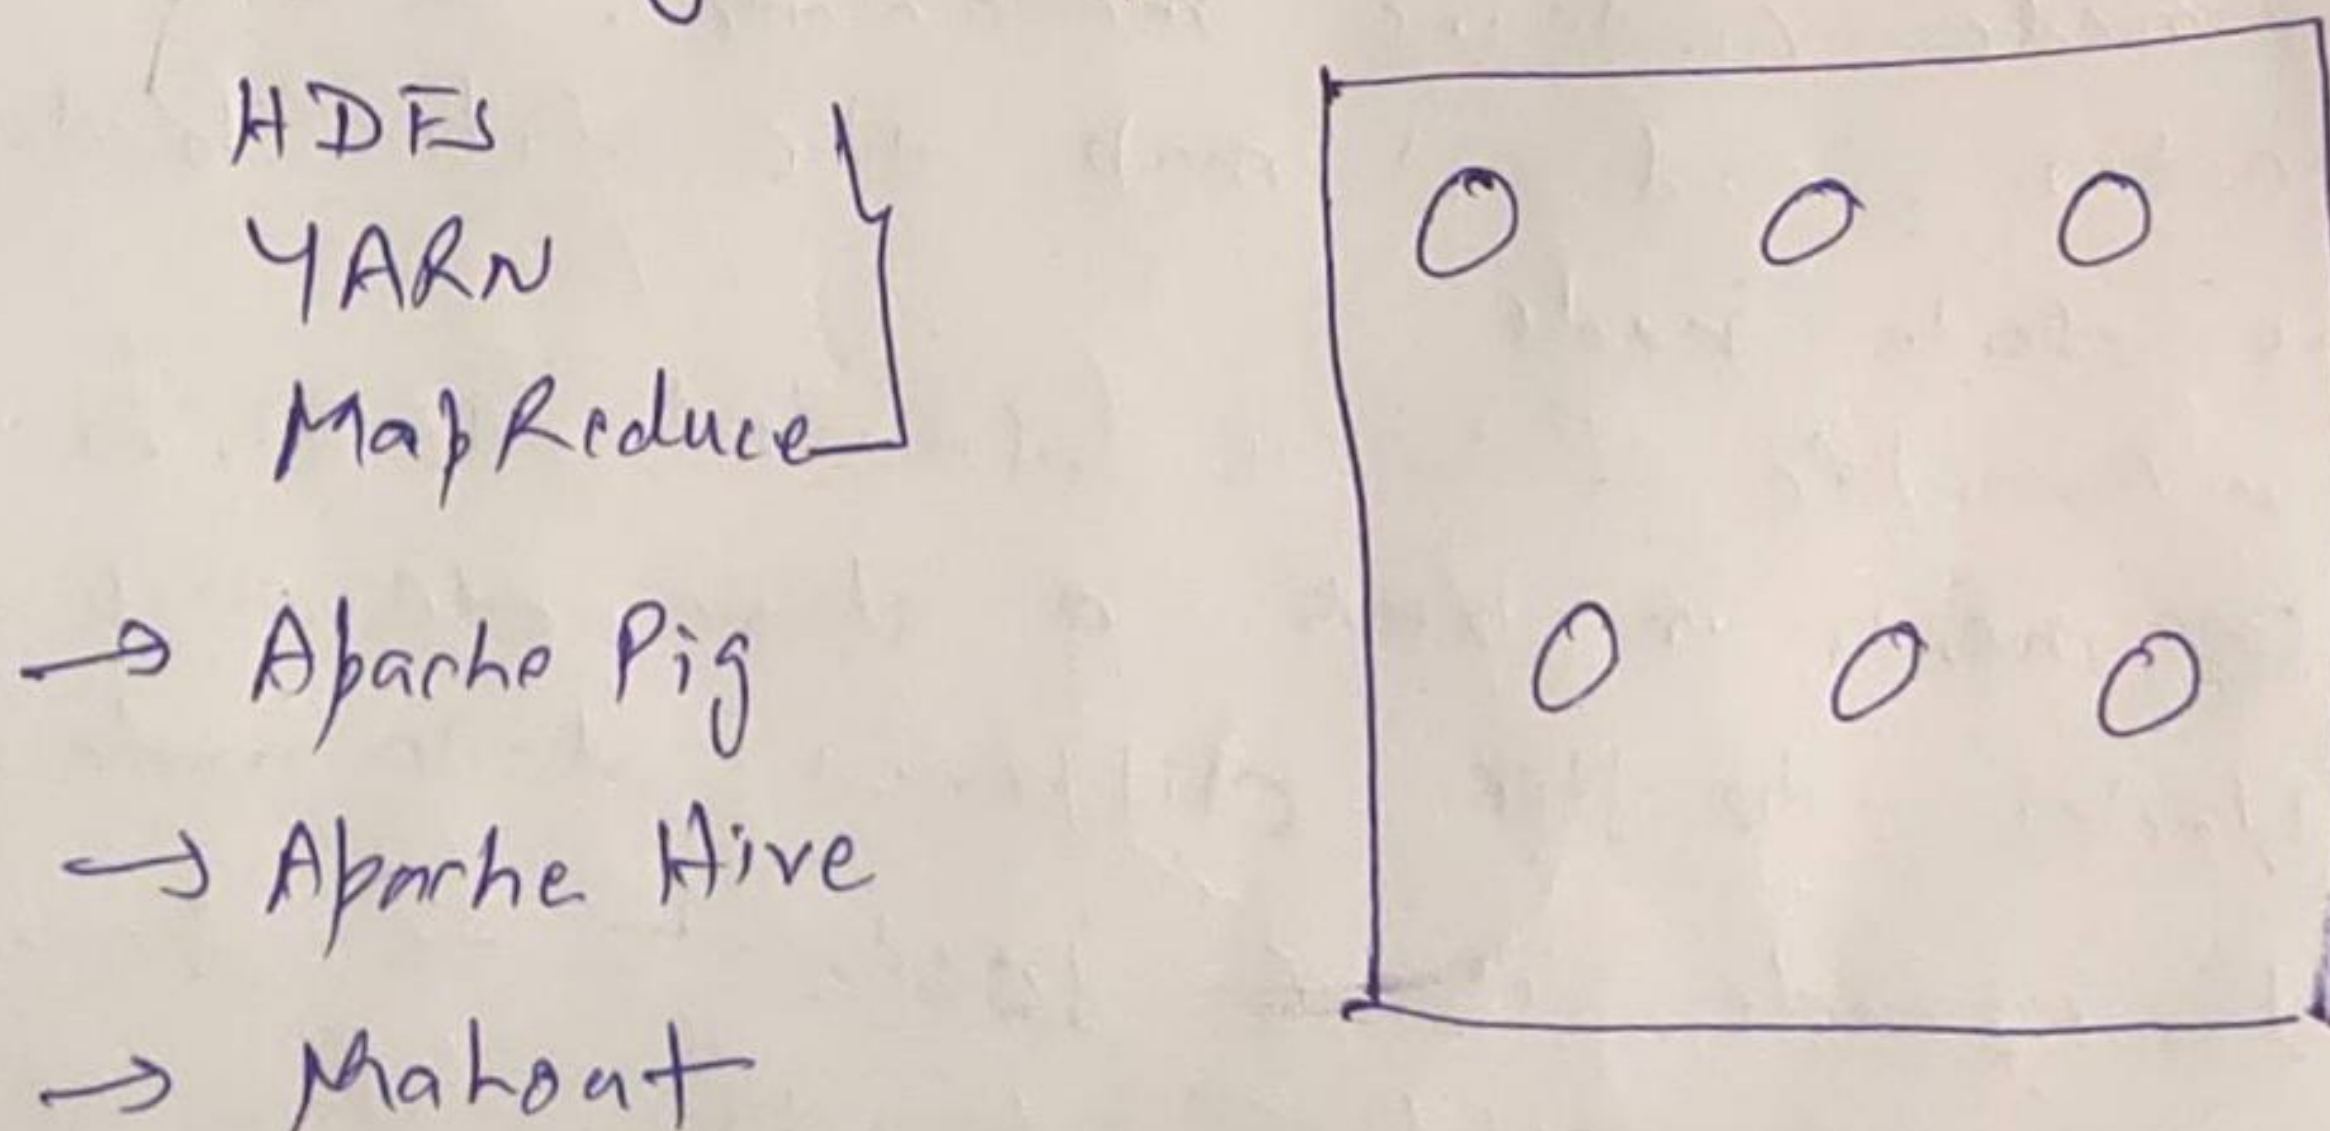 HDFS
YARN
MapReduce
→ Apache Pig
→ Apache Hive
→ Mahout